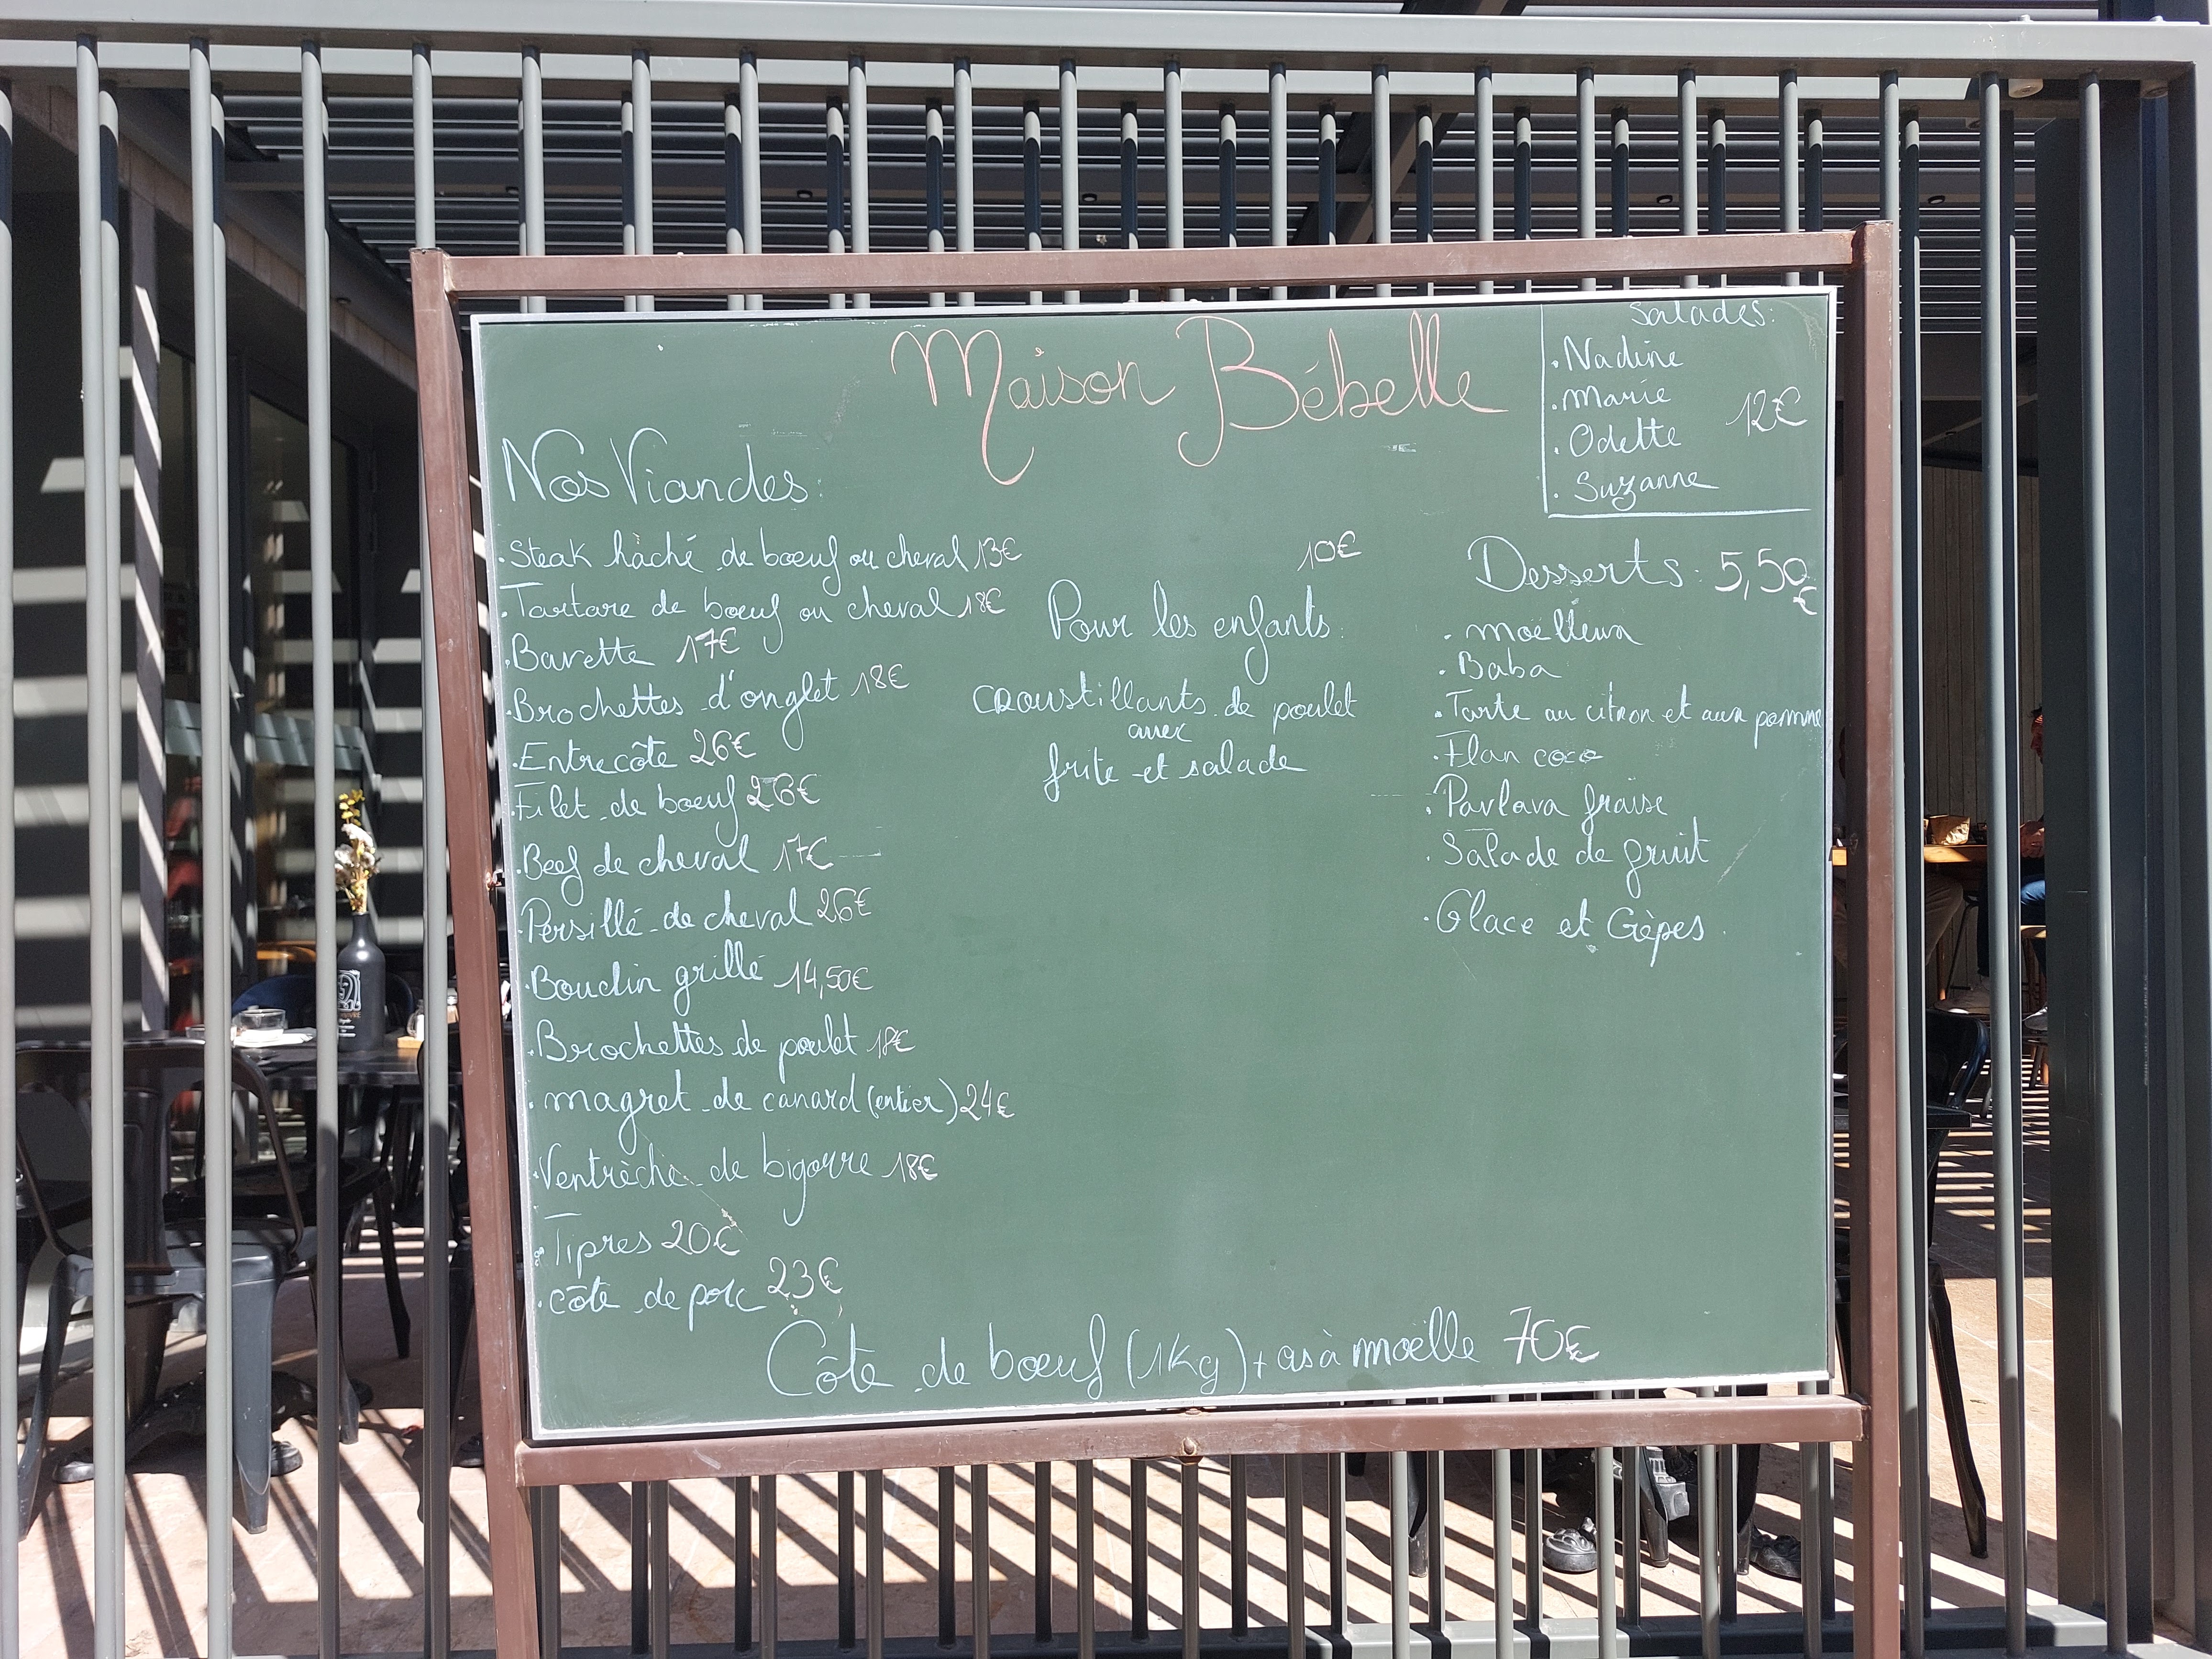 Maison Bébelle
Salades:
. Nadine
. Marie
12€
. Odette
. Suzanne
Nos Viandes:
. Steak hàché de bœuf ou cheval 13€
. Tartare de bœuf ou cheval 18€
. Bavette 17€
. Brochettes d'onglet 18€
. Entrecôte 26€
. Filet de bœuf 26€
. Beef de cheval 17€
. Persillé de cheval 26€
. Boudin grillé 14,50€
. Brochettes de poulet 18€
. magret de canard (entier) 24€
. Ventrèche de bigorre 18€
. Tipres 20€
. Côte de porc 23€
10€
Pour les enfants:
croustillants de poulet
avec
frite et salade
Desserts: 5,50
€
. moëlleux
. Baba
. Tarte au citron et aux pomme
. Flan coco
. Pavlava fraise
. Salade de fruit
. Glace et Crèpes.
Côte de bœuf (1Kg) + os à moëlle 70€